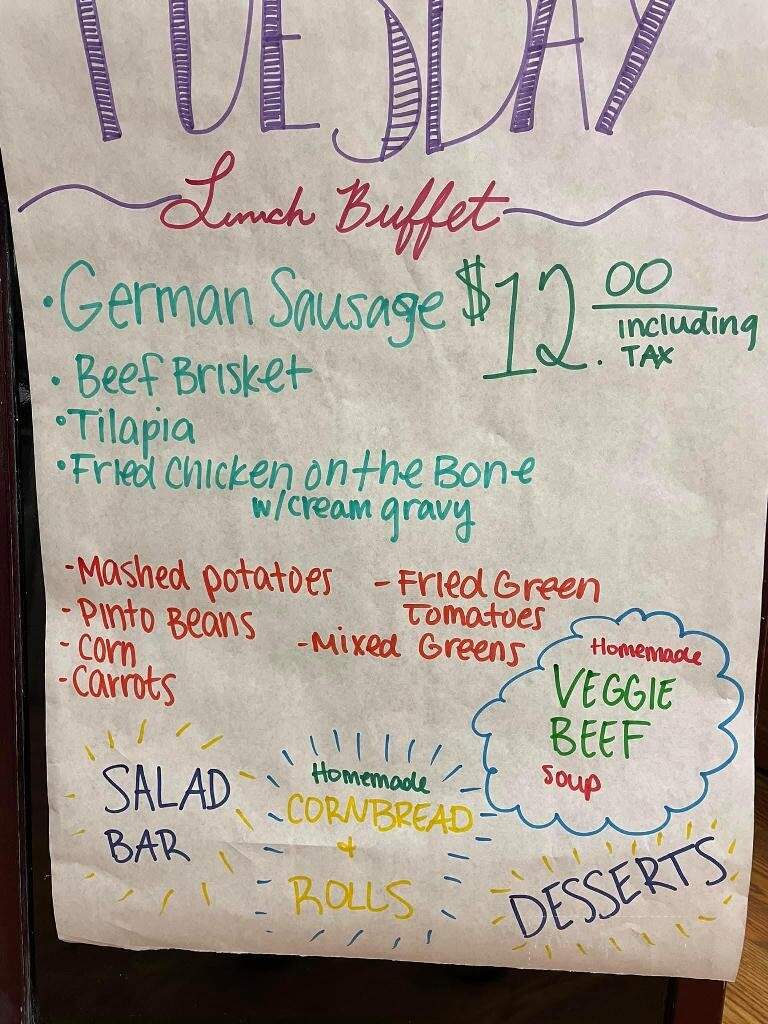 TUESDAY
Lunch Buffet
• German Sausage
$12.00 including
TAX
• Beef Brisket
• Tilapia
• Fried Chicken on the Bone
w/cream gravy
- Mashed potatoes
- Pinto Beans
- Corn
- Carrots
- Fried Green
Tomatoes
- Mixed Greens
Homemade
VEGGIE
BEEF
Soup
SALAD
BAR
Homemade
CORNBREAD
+
ROLLS
DESSERTS